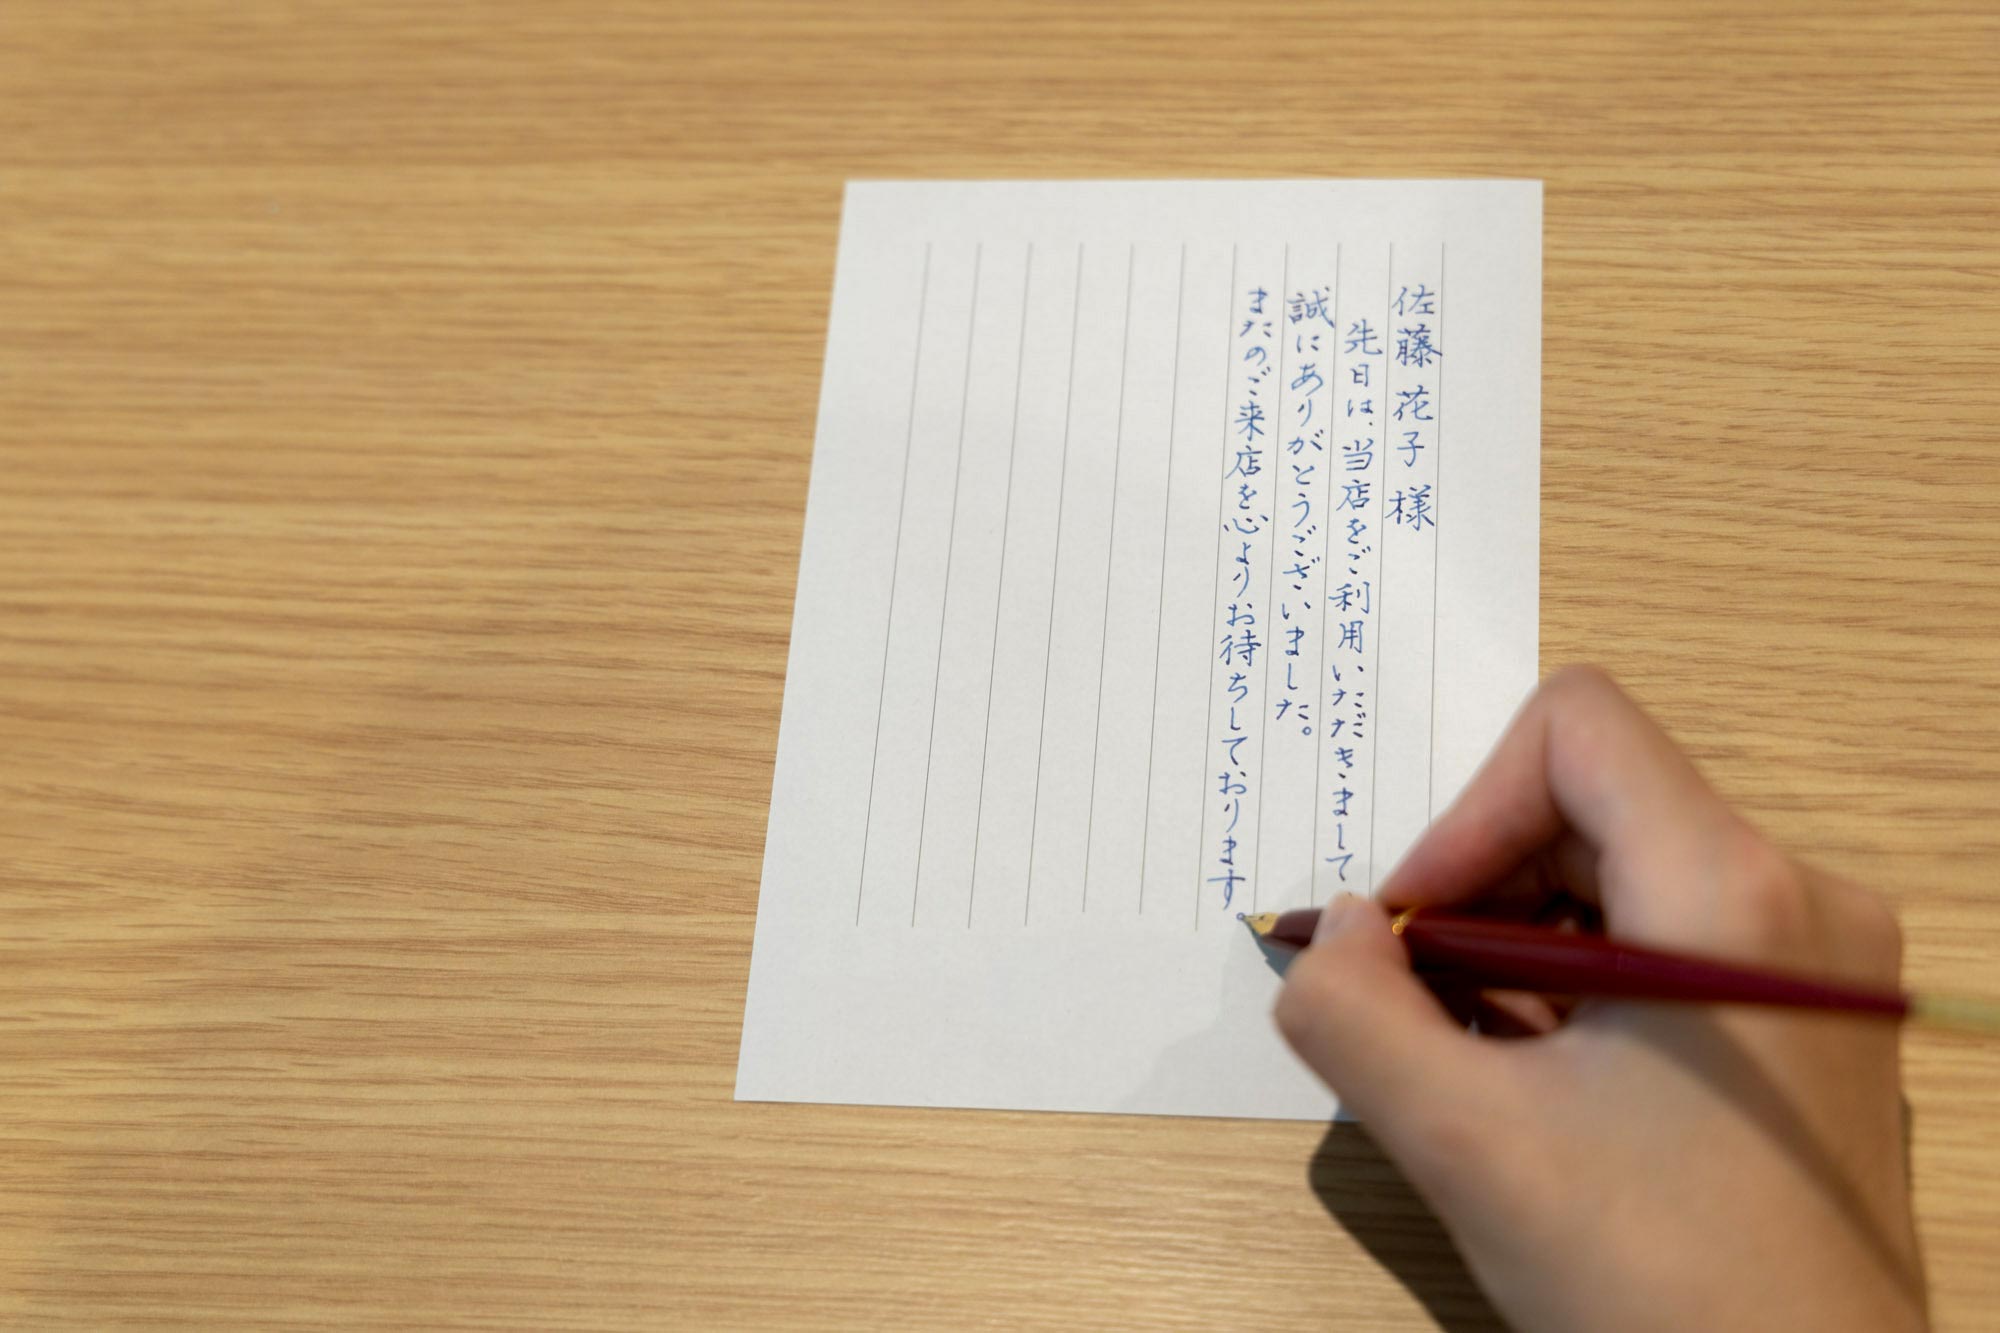 佐藤 花子 様
先日は、当店をご利用いただきまして、
誠にありがとうございました。
またのご来店を心よりお待ちしております。